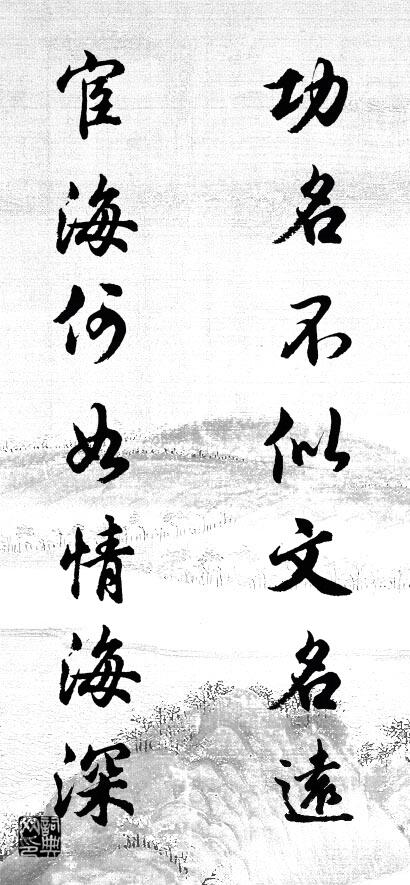 功名不似文名遠
宦海何如情海深